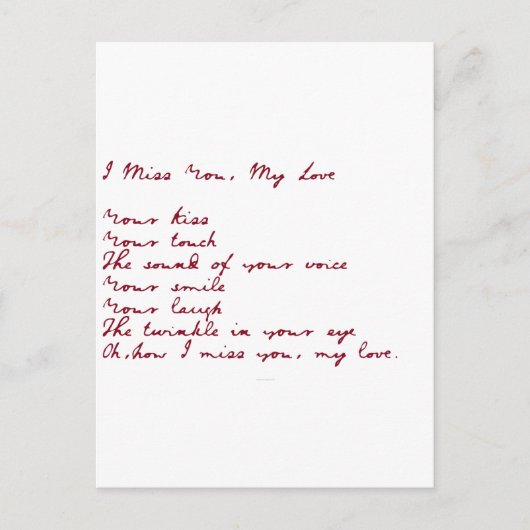 I Miss You, My Love
Your kiss
Your touch
The sound of your voice
Your smile
Your laugh
The twinkle in your eye
Oh, how I miss you, my love.